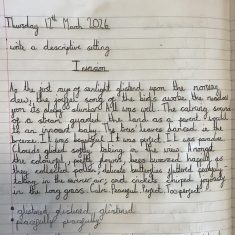 Thursday 12th March 2026
write a descriptive setting
Tension
As the first rays of sunlight glistened upon the morning
dew, the joyful songs of the birds awoke the meadow
from its deep slumber. All was well. The calming sound
of a stream guarded the land as a parent would
to an innocent baby. The trees' leaves danced in the
breeze. It was beautiful. It was perfect. It was paradise.
Clouds glided softly, taking in the view. Amongst
the colourful, flowers, bees hummed happily as
they collected pollen, delicate butterflies fluttered
in the summer air, and crickets chirped joyously
in the long grass. Calm. Peaceful. Perfect. Too perfect.
glistened, glistened, glistened
peacefully peacefully